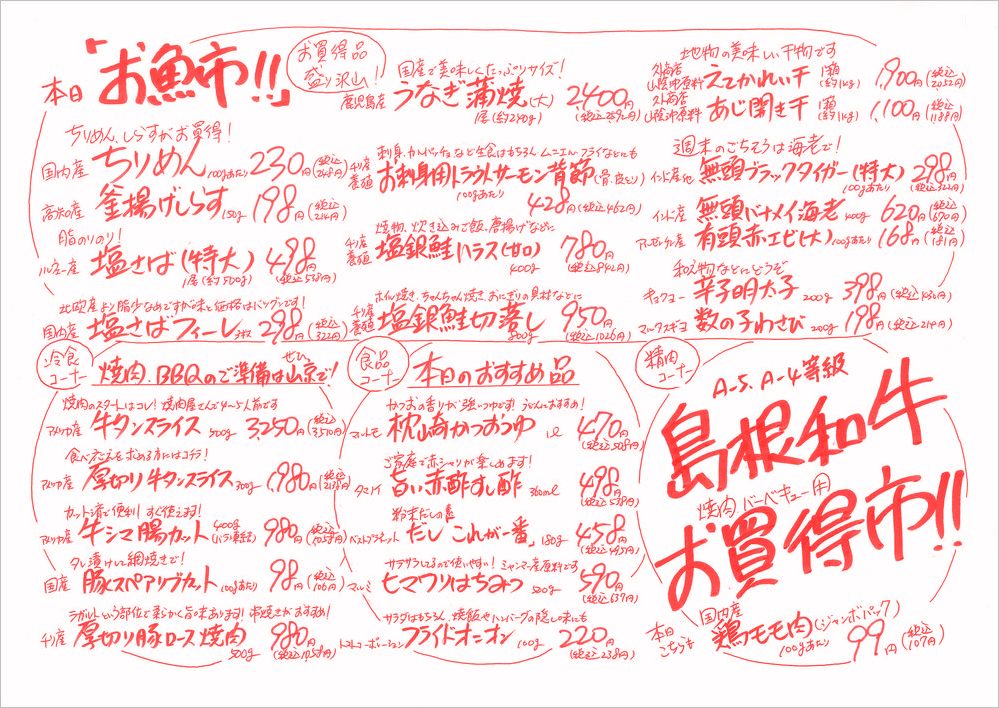 本日
「お魚市!!」
お買得品
盛り沢山!
国産で美味しくたっぷりサイズ!
鹿児島産 うなぎ蒲焼(大) 2400円
1尾(約240g) (税込2592円)
地物の美味しい干物です
山陰沖原料 えてかれい干 1箱(約1kg) 1,900円(税込2052円)
山陰沖原料 あじ開き干 1箱(約1kg) 1,100円(税込1188円)
ちりめん、しらすがお買得!
国内産 ちりめん 100gあたり 230円(税込248円)
高知産 釜揚げしらす 150g 198円(税込214円)
脂のりのり!
ノルウェー産 塩さば(特大) 498円
1尾(約500g) (税込538円)
北欧産より脂少なめですが味と価格はバツグンです!
国内産 塩さばフィーレ 298円(税込322円)
刺身、カルパッチョなど生食はもちろん ムニエル、フライなどにも
チリ産養殖 お刺身用トラウトサーモン背節(骨、皮とり)
100gあたり 428円(税込462円)
焼物、炊き込みご飯、唐揚げなどに
チリ産養殖 塩銀鮭ハラス(甘口) 780円
400g (税込842円)
ホイル焼き、ちゃんちゃん焼き、おにぎりの具材などに
チリ産養殖 塩銀鮭切落し 950円
800g (税込1026円)
週末のごちそうは海老で!
インド産他 無頭ブラックタイガー(特大) 298円
100gあたり (税込322円)
インド産 無頭バナメイ海老 400g 620円(税込670円)
アルゼンチン産 有頭赤エビ(大) 100gあたり 168円(税込181円)
和え物などにどうぞ
キョクヨー 辛子明太子 200g 398円(税込430円)
マルスギヨ 数の子わさび 200g 198円(税込214円)
冷食
コーナー
焼肉、BBQのご準備はぜひ山京で!
焼肉のスタートはコレ! 焼肉屋さんで4〜5人前です
アメリカ産 牛タンスライス 500g 3,250円(税込3,510円)
食べごたえを求める方にはコチラ!
アメリカ産 厚切り牛タンスライス 300g 1,980円(税込2138円)
カット済で便利! すぐ使えます!
アメリカ産 牛シマ腸カット 400g(バラ凍結) 980円(税込1058円)
タレ漬けして網焼きで!
国産 豚スペアリブカット 100gあたり 98円(税込106円)
ラガルトという部位で柔らかく旨味あります! 串焼きがおすすめ!
チリ産 厚切り豚ロース焼肉 980円
500g (税込1058円)
食品
コーナー
本日のおすすめ品
かつおの香りが強いつゆです! うどんにおすすめ!
マルトモ 枕崎かつおつゆ 1L 470円
(税込508円)
ご家庭で赤シャリが楽しめます!
タマノイ 旨い赤酢すし酢 360ml 498円
(税込538円)
粉末だしの素
ベストプラネット だし これが一番 180g 458円
(税込495円)
サラサラしてるので使いやすい! ミャンマー産原料です
マルミ ヒマワリはちみつ 500g 590円
(税込637円)
サラダはもちろん、焼飯やハンバーグの隠し味にも
トマトコーポレーション フライドオニオン 100g 220円
(税込238円)
精肉
コーナー
A-5、A-4等級
島根和牛
焼肉 バーベキュー用
お買得市!!
本日こちらも 国内産
鶏モモ肉(ジャンボパック)
100gあたり 99円(税込107円)